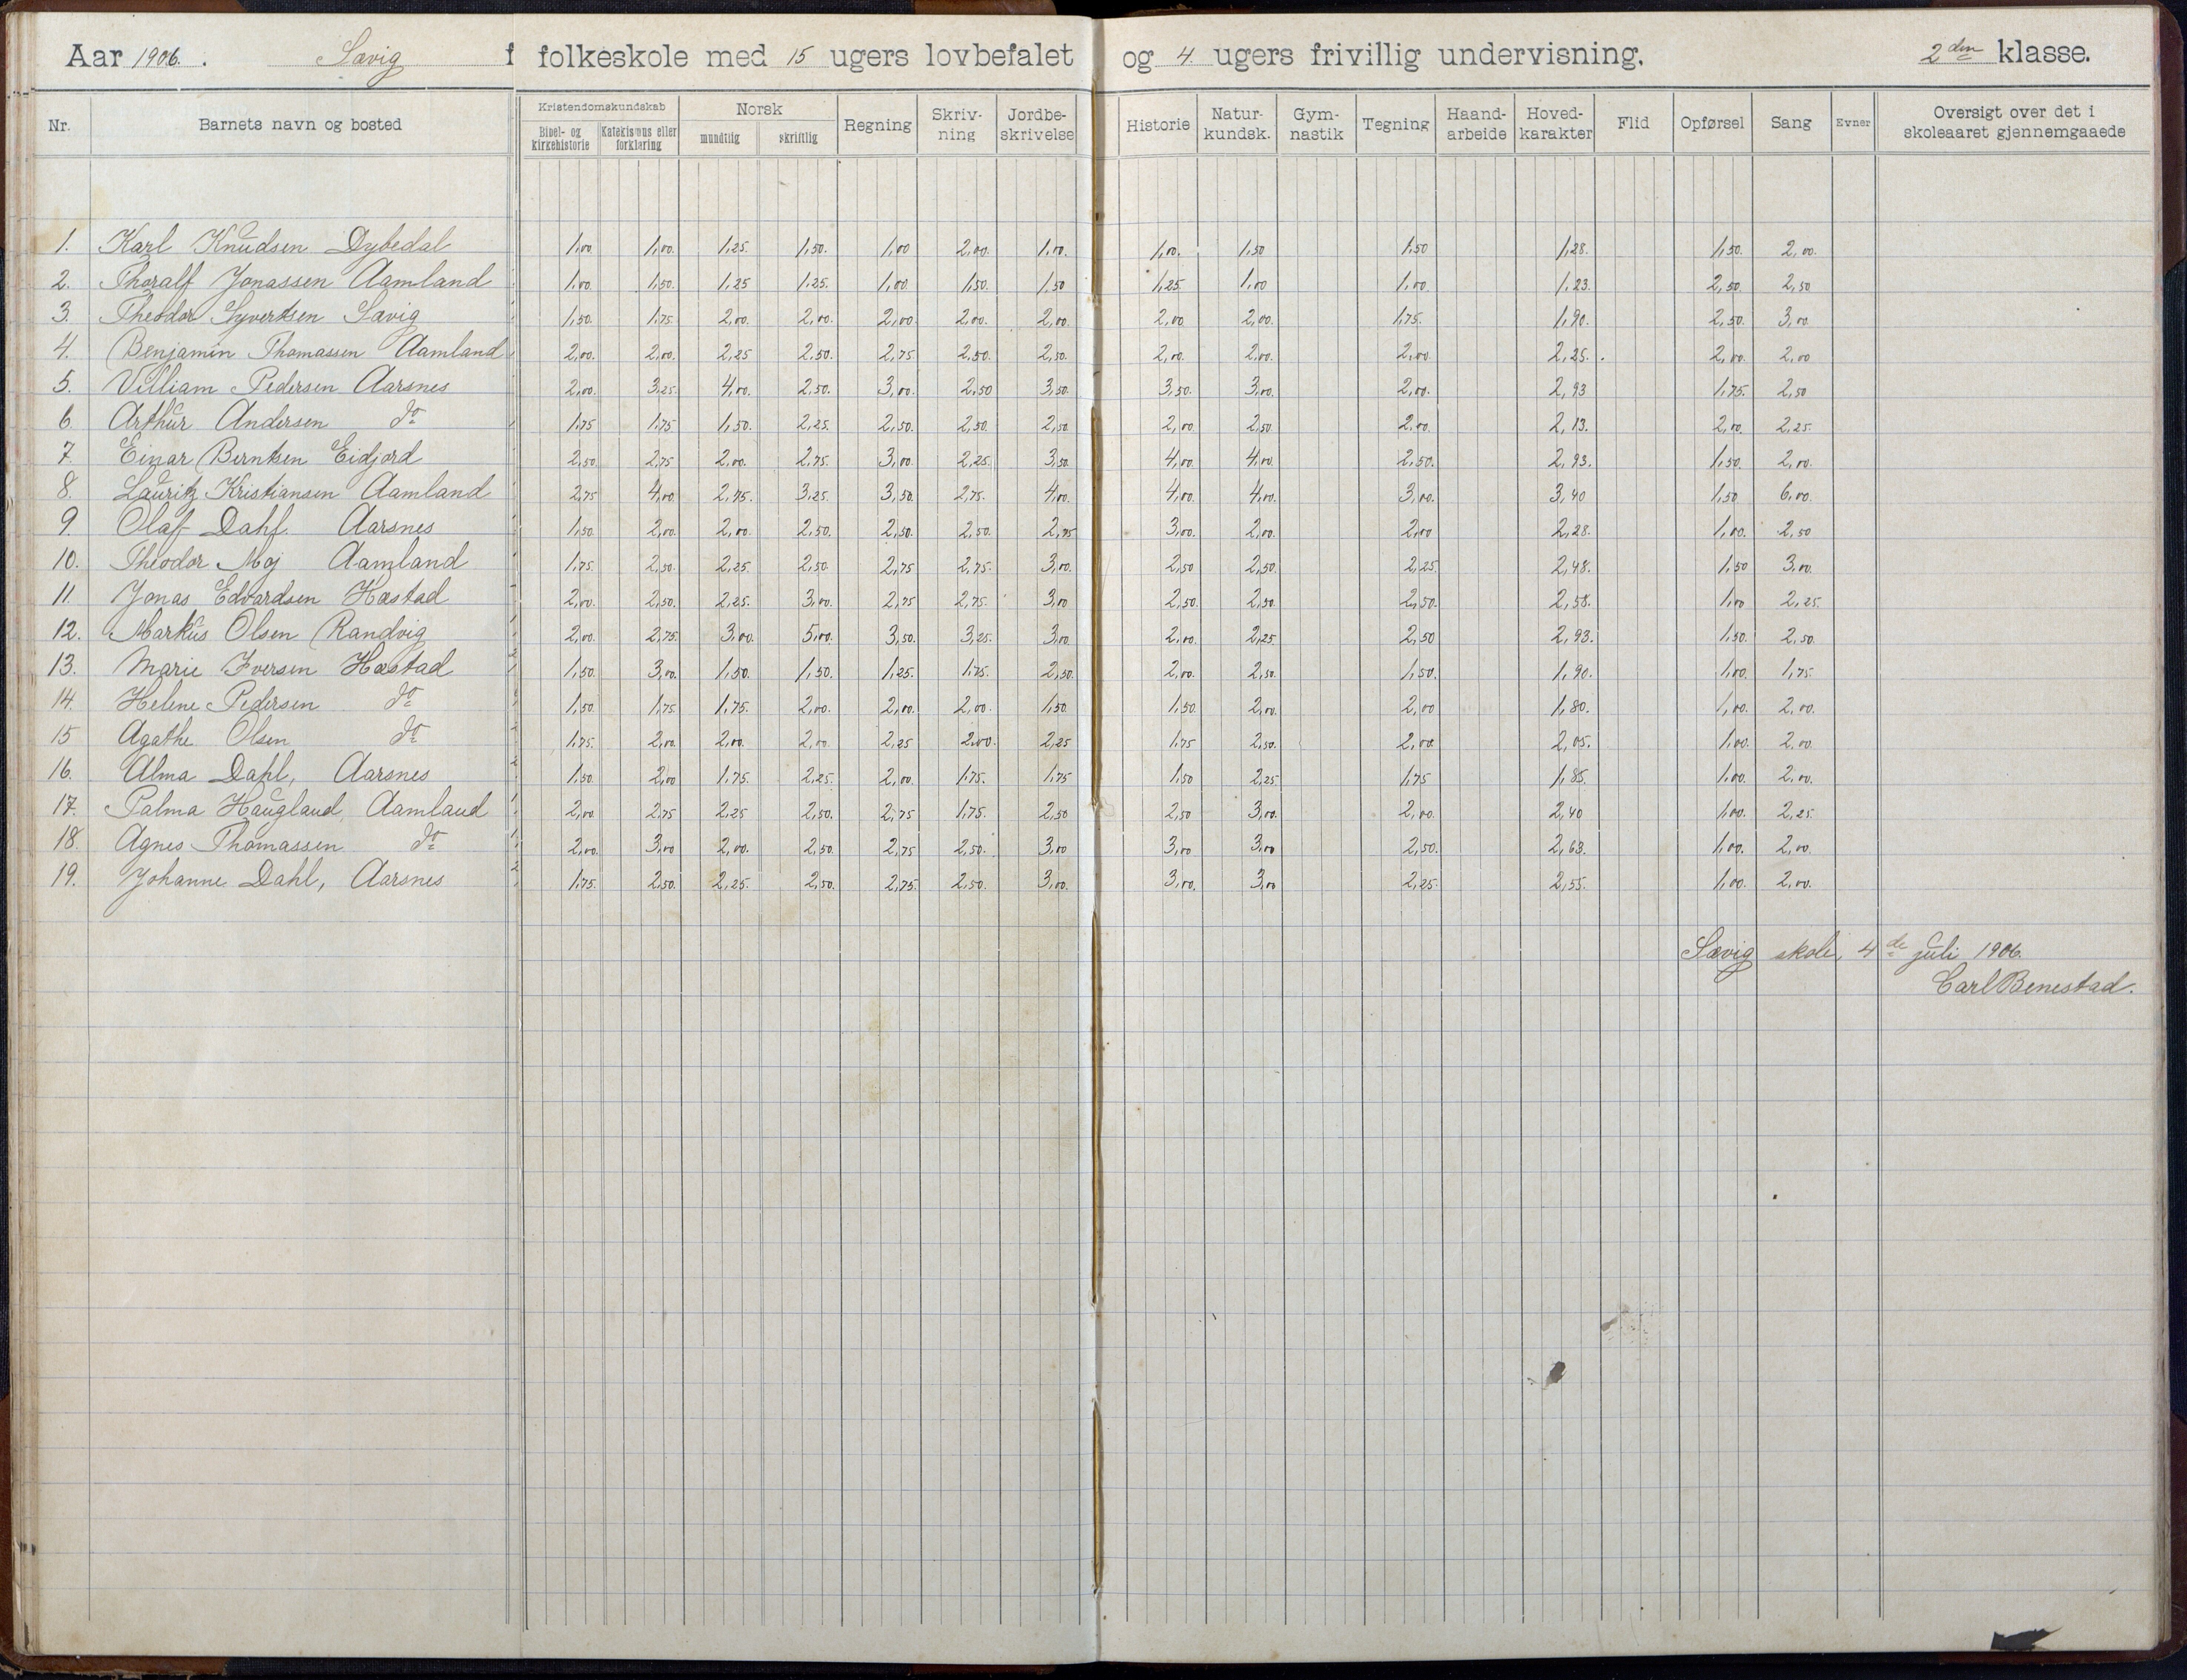 Aar 1906. Sævig f folkeskole med 15 ugers lovbefalet og 4 ugers frivillig undervisning. 2den klasse.
Nr. Barnets navn og bosted Kristendomskundskab Bibel- og kirkehistorie Katekismus eller forklaring Norsk mundtlig skriftlig Regning Skriv-ning Jordbe-skrivelse Historie Natur-kundsk. Gym-nastik Tegning Haand-arbeide Hoved-karakter Flid Opførsel Sang Evner Oversigt over det i skoleaaret gjennemgaaede
1. Karl Knudsen Dybedal 1,00. 1,00. 1,25. 1,50. 1,00 2,00. 1,00. 1,00. 1,50 1,50 1,28. 1,50. 2,00.
2. Thoralf Jonassen Aamland 1,00. 1,50. 1,25 1,25. 1,00. 1,50. 1,50 1,25. 1,00 1,00. 1,23. 2,50. 2,50
3. Theodor Syvertsen Sævig 1,50. 1,75 2,00. 2,00. 2,00. 2,00. 2,00. 2,00 2,00. 1,75. 1,90. 2,50. 3,00.
4. Benjamin Thomassen Aamland 2,00. 2,00. 2,25 2,50. 2,75 2,50. 2,50. 2,00. 2,00. 2,00. 2,25. 2,00. 2,00
5. Villiam Pedersen Aarsnes 2,00. 3,25. 4,00. 2,50. 3,00. 2,50 3,50. 3,50. 3,00. 2,00. 2,93 1,75. 2,50
6. Arthur Andersen do 1,75 1,75 1,50. 2,25. 2,50. 2,50. 2,50 2,00. 2,50. 2,00. 2,13. 2,00. 2,25.
7. Einar Berntsen Eidjord 2,50. 2,75 2,00. 2,75. 3,00. 2,25. 3,50 4,00. 4,00. 2,50. 2,93. 1,50. 2,00.
8. Lauritz Kristiansen Aamland 2,75 4,00. 2,75. 3,25. 3,50. 2,75. 4,00. 4,00. 4,00. 3,00. 3,40 1,50 6,00.
9. Olaf Dahl. Aarsnes 1,50. 2,00. 2,00. 2,50. 2,50. 2,50. 2,75 3,00. 2,00. 2,00 2,28. 1,00. 2,50
10. Theodor Moj Aamland 1,75. 2,50. 2,25. 2,50. 2,75 2,75. 3,00. 2,50 2,50. 2,25. 2,48. 1,50 3,00.
11. Jonas Edvardsen Hæstad 2,00. 2,50. 2,25. 3,00. 2,75 2,75. 3,00 2,50. 2,50. 2,50. 2,58. 1,00 2,25.
12. Markus Olsen Randvig 2,00. 2,75. 3,00. 5,00. 3,50. 3,25. 3,00 2,00. 2,25 2,50 2,93. 1,50. 2,50.
13. Marie Iversen Hæstad 1,50. 3,00. 1,50. 1,50. 1,25. 1,75. 2,50. 2,00. 2,50. 1,50. 1,90. 1,00. 1,75.
14. Helene Pedersen do 1,50. 1,75. 1,75. 2,00. 2,00. 2,00. 1,50. 1,50. 2,00. 2,00 1,80. 1,00. 2,00.
15 Agathe Olsen do 1,75. 2,00. 2,00. 2,00. 2,25 2,00. 2,25 1,75 2,50. 2,00. 2,05. 1,00. 2,00.
16. Alma Dahl, Aarsnes 1,50. 2,00 1,75. 2,25. 2,00. 1,75. 1,75 1,50 2,25. 1,75 1,85. 1,00. 2,00.
17. Palma Haugland, Aamland 2,00. 2,75 2,25 2,50. 2,75 1,75. 2,50 2,50 3,00. 2,00. 2,40 1,00. 2,25.
18. Agnes Thomassen do 2,00. 3,00 2,00. 2,50. 2,75 2,50. 3,00 3,00 3,00 2,50. 2,63. 1,00. 2,00.
19. Johanne Dahl, Aarsnes 1,75. 2,50. 2,25. 2,50. 2,75. 2,50. 3,00. 3,00. 3,00 2,25. 2,55. 1,00. 2,00.
Sævig skole, 4de juli 1906.
Carl Benestad.